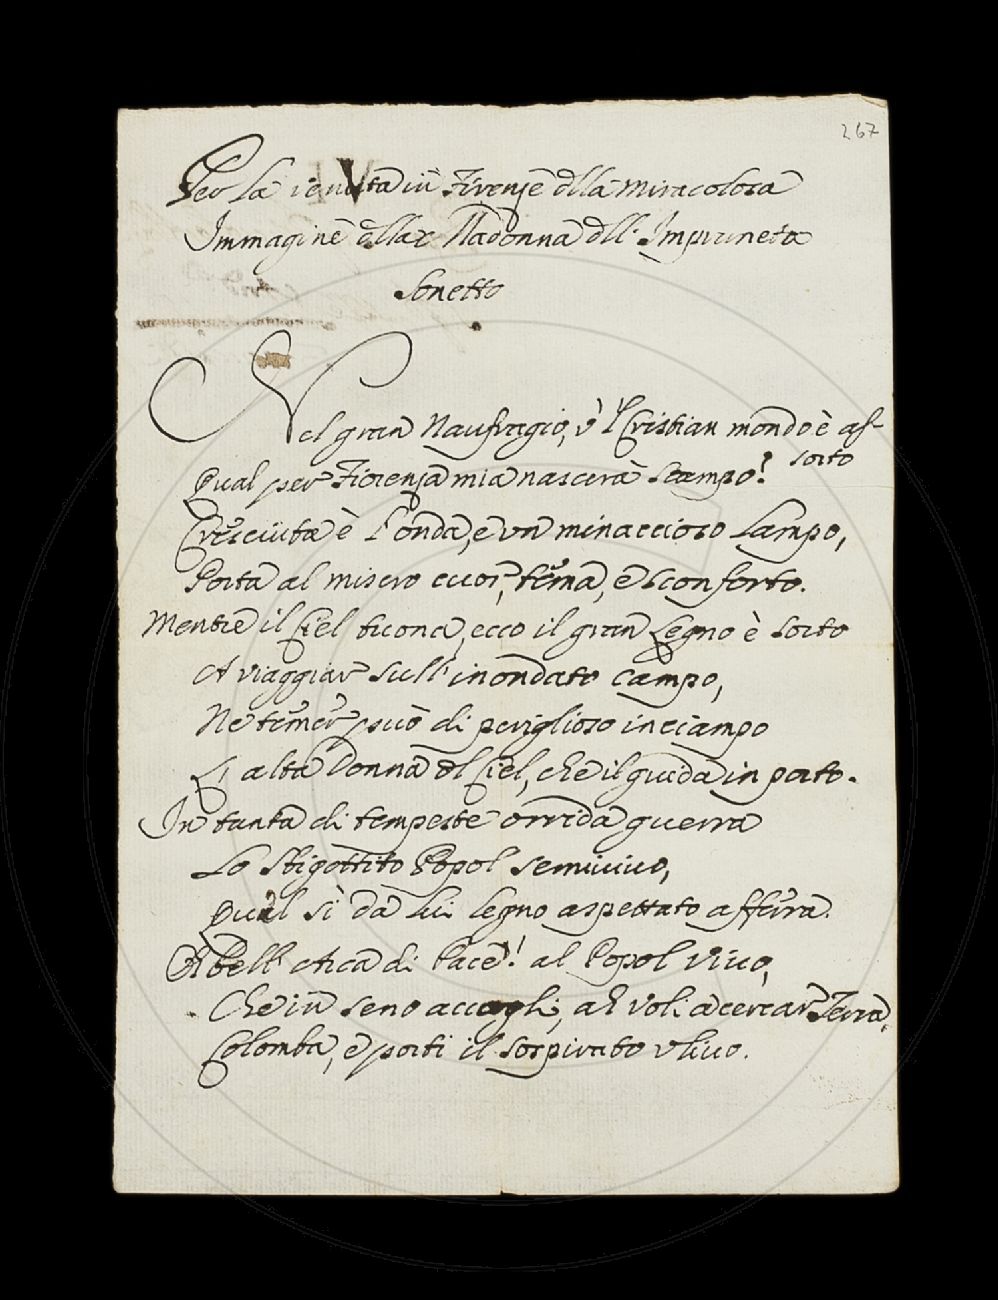 267
Per la venuta in Firenze dlla Miracolosa
Immagine dlla Madonna dll' Impruneta
Sonetto
Nel gran Naufragio, v' 'l Cristian mondo è as-
sorto
Qual per Fiorenza mia nascerà scampo?
Cresciuta è l'onda, e vn minaccioso Lampo,
Porta al misero cuor, tema, e sconforto.
Mentre il Ciel tuona, ecco il gran Legno è sorto
A viaggiar sull'inondato campo,
Ne temer può di periglioso inciampo
L'alta Donna dl Ciel, che il guida in porto.
In tanta di tempeste orrida guerra
Lo sbigottito Popol semiuiuo,
Qual si da lui legno aspettato afferra.
A bell' Arca di Pace! al Popol viuo,
Che in seno accogli, ah voli a cercar Terra,
Colomba, e porti il sospirato vliuo.